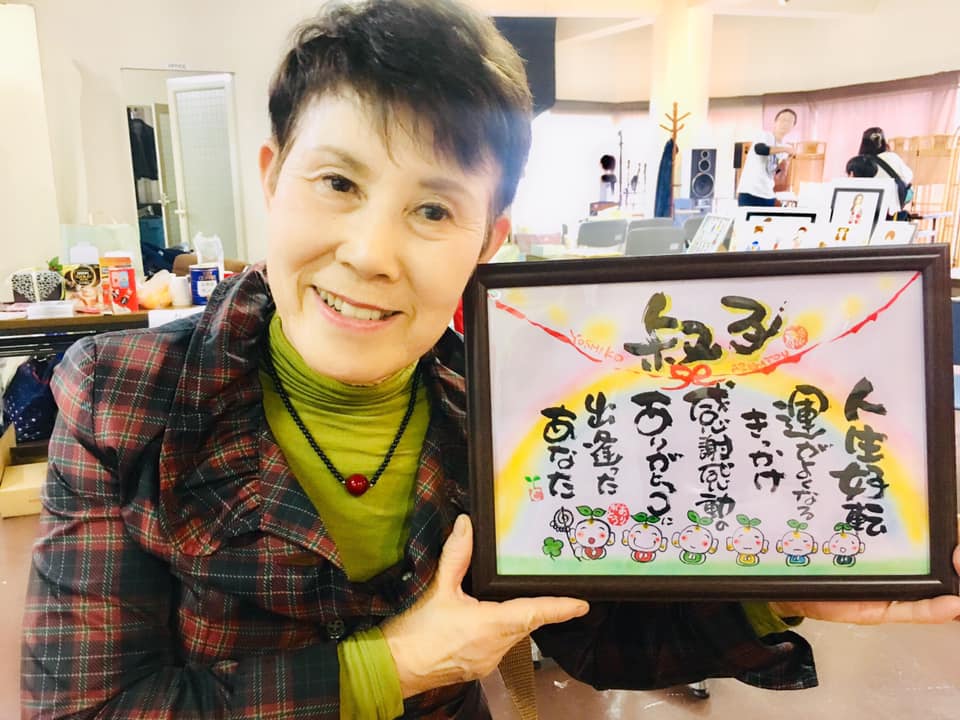 OFFICE
紀子
YOSHIKO
人生好転
運がよくなる
きっかけ
感謝感動の
ありがとうに
出逢った
あなた